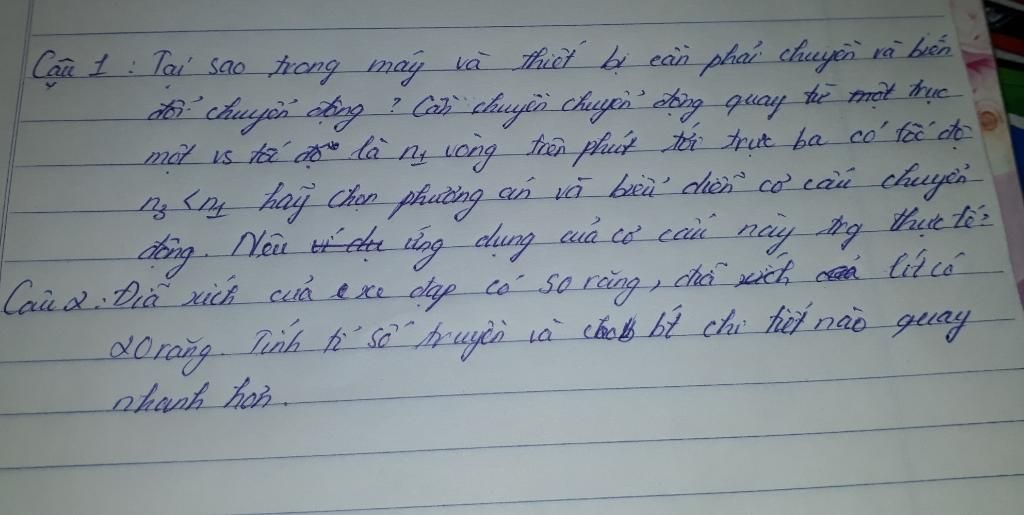 Câu 1 : Tại sao trong máy và thiết bị cần phải chuyền và biến
đổi chuyển động ? Cần chuyền chuyển động quay từ một trục
một vs tốc độ là n1 vòng trên phút tới trục ba có tốc độ
n3 < n1 hãy chọn phương án và biểu diễn cơ cấu chuyển
động. Nêu ví dụ ứng dụng của cơ cấu này trg thực tế?
Câu 2 : Đĩa xích của xe đạp có 50 răng, đĩa xích líp có
20 răng. Tính tỉ số truyền và bt chi tiết nào quay
nhanh hơn.